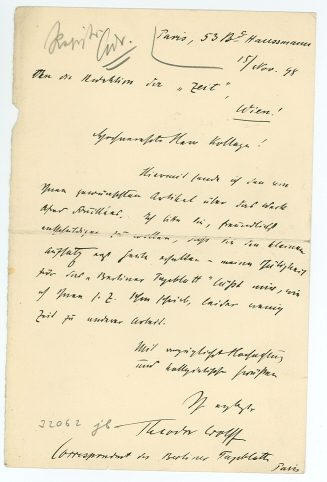 Paris, 53 Bd Haussmann
15/Nov. 98
An die Redaktion der „Zeit“,
Wien!
Hochgeehrter Herr Kollege!
Hiermit sende ich den von
Ihnen gewünschten Artikel über das Werk
. Ich bitte Sie, freundlichst
entschuldigen zu wollen, daß Sie den kleinen
Aufsatz erst heute erhalten – meine Thätigkeit
für das „Berliner Tageblatt“ läßt mir, wie
ich Ihnen s. Z. schon schrieb, leider wenig
Zeit zu anderer Arbeit.
Mit vorzüglicher Hochachtung
und kollegialischen Grüßen
Ihr ergebener
32062
Theodor Wolff
Correspondent des Berliner Tageblatts
Paris